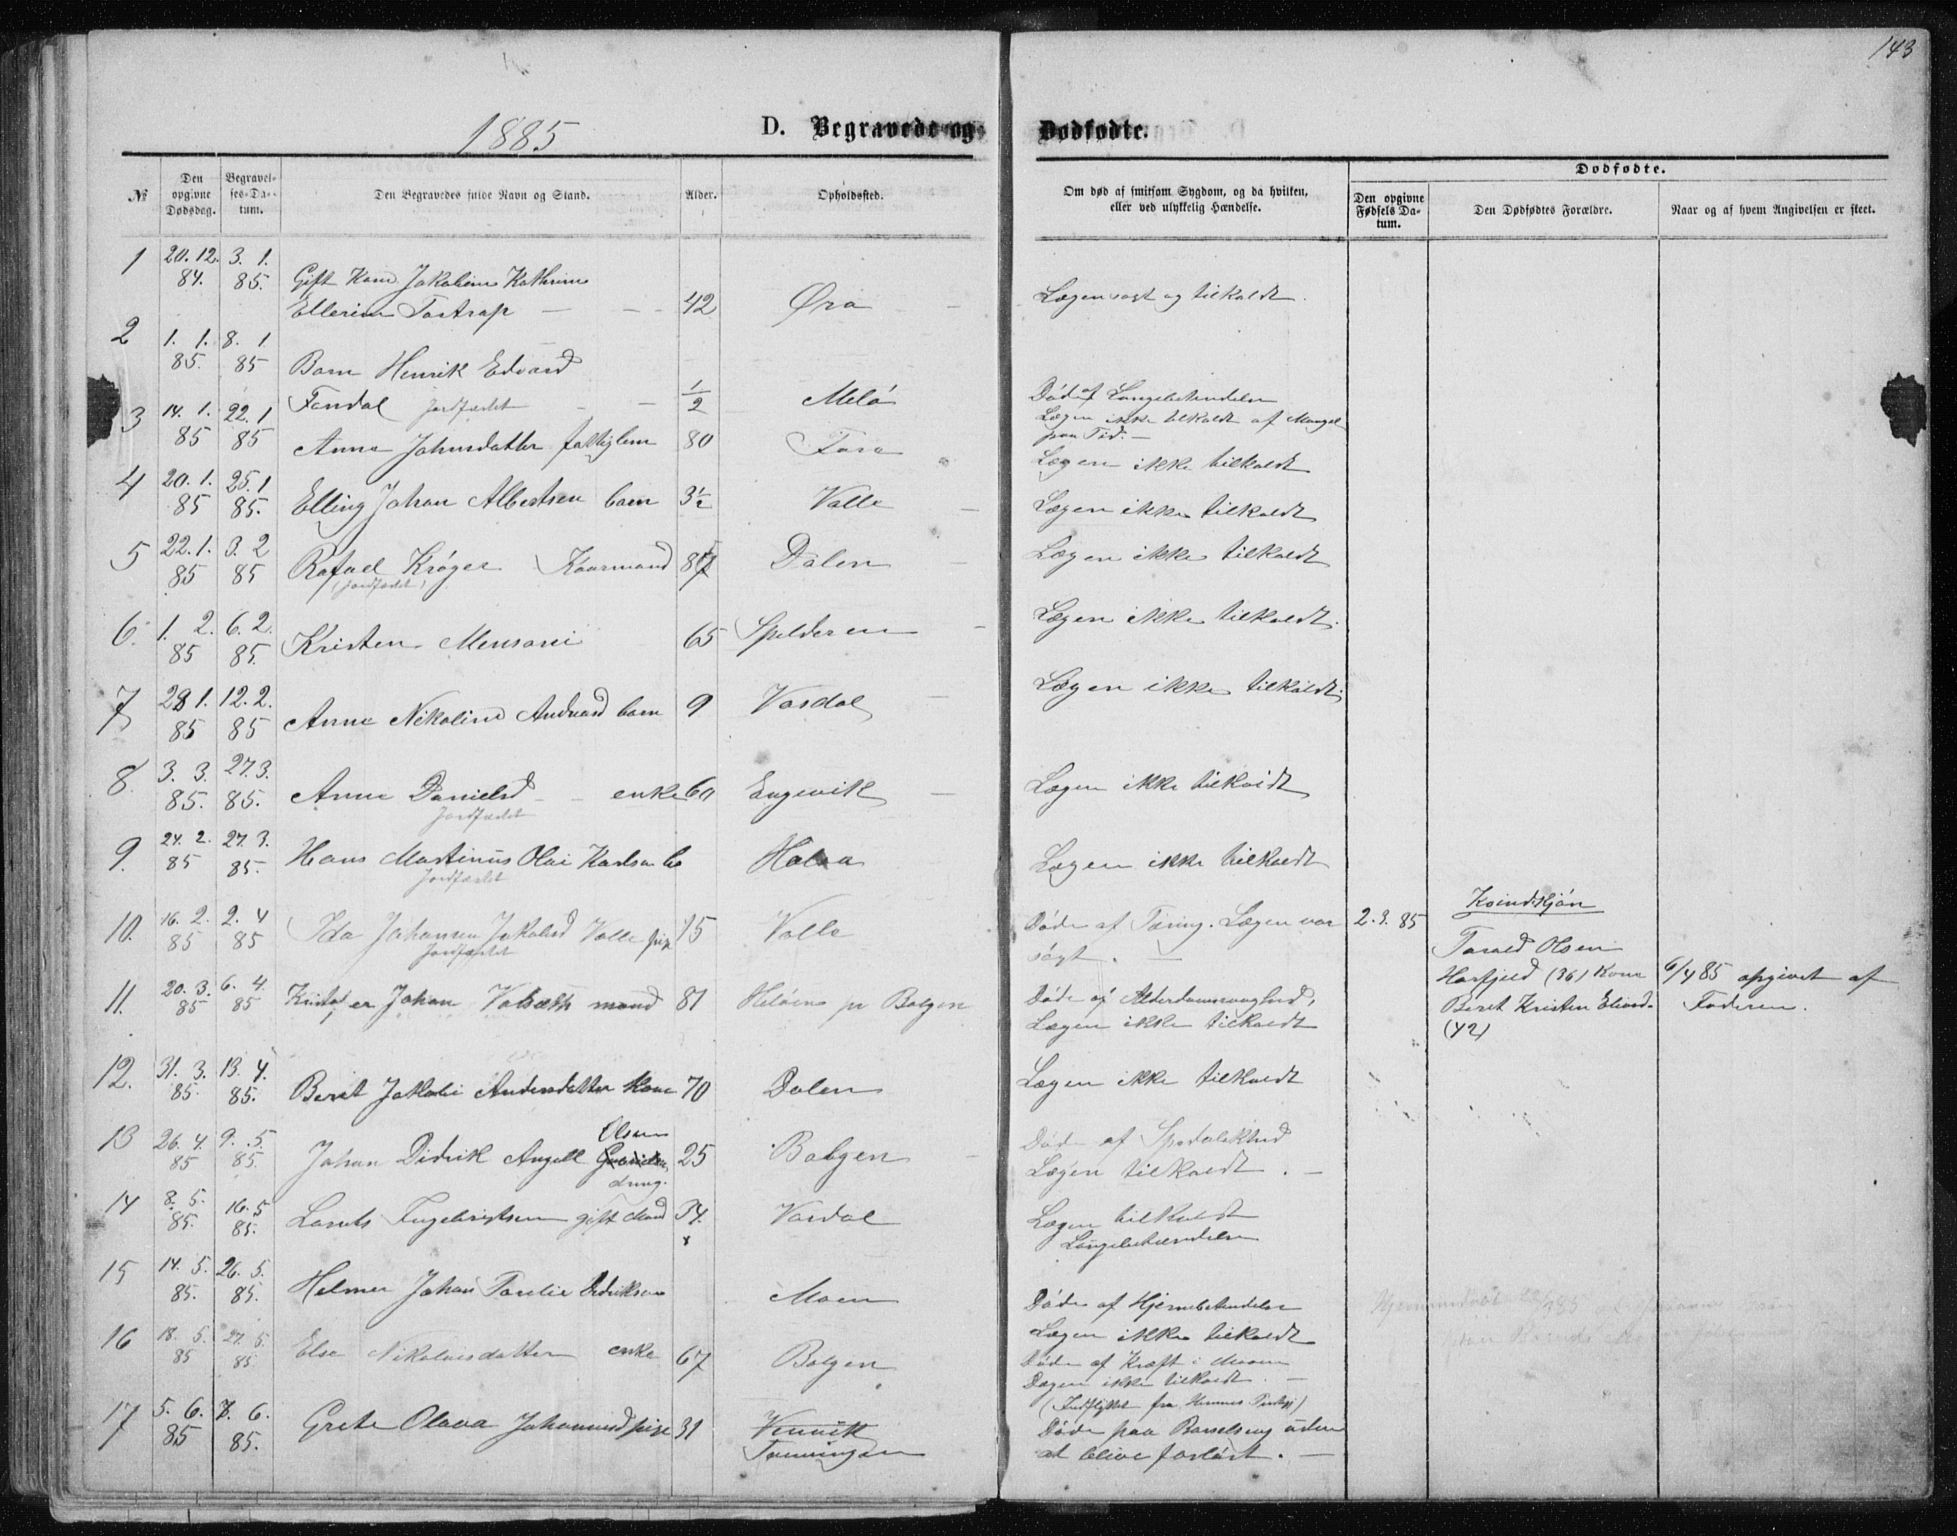 143
1885
D. Begravede og Dødfødte.
№
Den opgivne Dødsdag.
Begravelses-Datum.
Den Begravedes fulde Navn og Stand.
Alder.
Opholdssted.
Om død af smitsom Sygdom, og da hvilken, eller ved ulykkelig Hændelse.
Dødfødte.
Den opgivne Fødsels Datum.
Den Dødfødtes Forældre.
Naar og af hvem Angivelsen er skeet.
1 20.12. 84. 3. 1. 85. Gift Kone Jakobine Kathrine
Tostrup 42 Øra
Lægen søgt og tilkaldt.
2 1. 1. 85. 8. 1 85 Barn Henrik Edvard
Fondal Jordfæstet ½ Melø
Død af Lungebetændelse
Lægen ikke tilkaldt af Mangel
paa Tid. —
3 14. 1. 85 22. 1 85 Anna Johnsdatter fattiglem 80
Lægen ikke tilkaldt
4 20. 1. 85 25. 1 85. Elling Johan Albertsen barn 3½ Valle
Lægen ikke tilkaldt
5 22. 1. 85 3. 2 85 Rafael Krøger Kaarmand Dalen
(Jordfæstet)
Lægen ikke tilkaldt
6. 1. 2. 85 6. 2. 85. Kristen 65 Spilderen
Lægen ikke tilkaldt.
7 28 1. 85 12. 2. 85 Anne Nikoline barn 9 Vasdal
Lægen ikke tilkaldt.
8. 3. 3. 85. 27. 3. 85. Anne Danielsd — enke 60 Engevik
Jordfæstet
Lægen ikke tilkaldt
9. 24. 2. 85 27. 3. 85. Hans Martinus Olai Karlsen Halsa
Jordfæstet
Lægen ikke tilkaldt
10. 16. 2. 85 2. 4 85 Ida Johansen Jakobsd Valle pige 15 Valle
Jordfæstet
Døde af Tæring. Lægen var
søgt. —
2. 3. 85
Kvindekjøn
Torald Olsen
Hasfjeld (36) Kone
Beret Kristen
(42)
6/4 85 opgivet af
Faderen.
11. 20. 3. 85 6. 4. 85 Johan mand 81 Heløen pr Bolgen
Døde af Alderdomssvaghed,
Lægen ikke tilkaldt
12. 31. 3. 85. 13. 4. 85. Berit Jakobie Andersdatter Kone 70 Dalen
Lægen ikke tilkaldt
13 26. 4. 85 9. 5. 85. Johan Didrik Angell Olsen 25 Bolgen
Døde af Spedalskhed
Lægen tilkaldt. —
14 8. 5. 85. 16. 5 85. Lorents Ingebrigtsen gift Mand 54. Vasdal
Lægen tilkaldt
Lungebetændelse
15 14. 5. 85. 26. 5. 85. Helmer Johan Didriksen Moen
Døde af Hjernebetændelse
Lægen ikke tilkaldt
16 18. 5. 85 27. 5. 85 Else Nikolaisdatter enke 67 Bolgen
Døde af Kræft i Maven
Lægen ikke tilkaldt. —
17 5. 6. 85 7. 6. 85. Grete Olava Johannesd pige 31 Vinvik
Tonningen
(Indflyttet fra Hemnes)
Døde paa Barselseng uden
at blive forløst. —